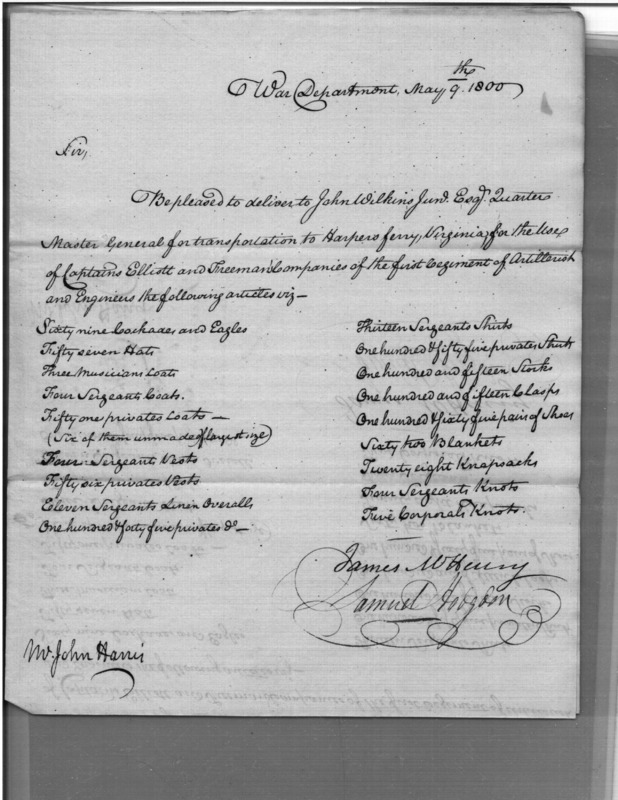 War Department, May 9th. 1800
Sir,
Be pleased to deliver to John Wilkins Junr. Esqr. Quarter
Master General for transportation to Harpers ferry, Virginia, for the Use
of Captains Elliott and Freeman's Companies of the first Regiment of Artillerist
and Engineers the following articles viz—
Sixty nine Cockades and Eagles
Fifty seven Hats
Three Musicians Coats
Four Sergeants Coats.
Fifty one privates Coats —
(Six of them unmade of largest size)
Four Sergeant Vests
Fifty six privates Vests
Eleven Sergeants Linen Overalls
One hundred & forty five privates do—
Thirteen Sergeants Shirts
One hundred & fifty five privates Shirts
One hundred and fifteen Stocks
One hundred and fifteen Clasps
One hundred & sixty five pairs of Shoes
Sixty two Blankets
Twenty eight Knapsacks
Four Sergeants Knots
Five Corporals Knots.
James McHenry
Samuel Hodgdon
Mr. John Harris